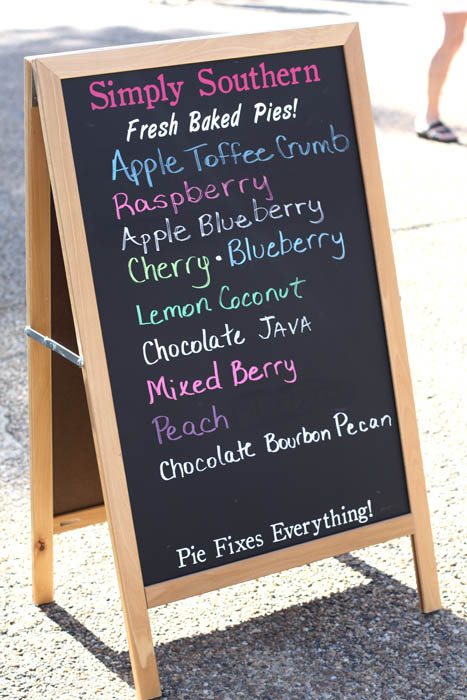 Simply Southern
Fresh Baked Pies!
Apple Toffee Crumb
Raspberry
Apple Blueberry
Cherry • Blueberry
Lemon Coconut
Chocolate JAVA
Mixed Berry
Peach
Chocolate Bourbon Pecan
Pie Fixes Everything!